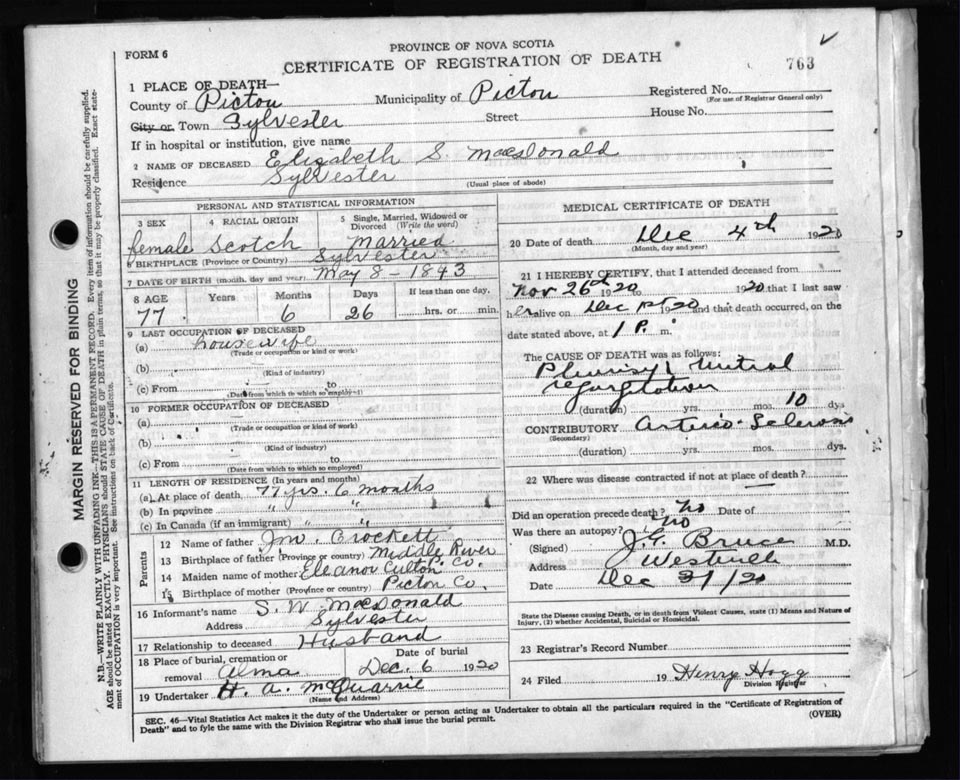 PROVINCE OF NOVA SCOTIA
FORM 6
CERTIFICATE OF REGISTRATION OF DEATH
763
1 PLACE OF DEATH—
County of Pictou Municipality of Pictou Registered No.
(For use of Registrar General only)
City or Town Sylvester Street House No.
If in hospital or institution, give name
2 NAME OF DECEASED Elizabeth S. MacDonald
Residence Sylvester (Usual place of abode)
PERSONAL AND STATISTICAL INFORMATION
3 SEX 4 RACIAL ORIGIN 5 Single, Married, Widowed or Divorced (Write the word)
female Scotch Married
6 BIRTHPLACE (Province or Country) Sylvester
7 DATE OF BIRTH (month, day and year) May 8 - 1843
8 AGE Years Months Days If less than one day.
77 6 26 hrs. or min.
9 LAST OCCUPATION OF DECEASED
(a) housewife
(Trade or occupation or kind or work)
(b)
(Kind of industry)
(c) From to
(Date from which to which so employed)
10 FORMER OCCUPATION OF DECEASED
(a)
(Trade or occupation or kind of work)
(b)
(Kind of industry)
(c) From to
(Date from which to which so employed)
11 LENGTH OF RESIDENCE (In years and months)
(a) At place of death 77 yrs. 6 months
(b) In province " "
(c) In Canada (if an immigrant) " "
Parents
12 Name of father Jm. Crockett
13 Birthplace of father (Province or country) Middle River P. Co.
14 Maiden name of mother Eleanor Culton
15 Birthplace of mother (Province or country) Pictou Co.
16 Informant's name S. W. MacDonald
Address Sylvester
17 Relationship to deceased Husband
18 Place of burial, cremation or removal Alma Date of burial Dec. 6 1920
19 Undertaker H. A. McQuarrie
(Name and Address)
MEDICAL CERTIFICATE OF DEATH
20 Date of death Dec 4th 1920
(Month, day and year)
21 I HEREBY CERTIFY, that I attended deceased from
Nov 26th 1920 1920 that I last saw
her alive on Dec 1st 1920 and that death occurred, on the
date stated above, at 1 P. m.
The CAUSE OF DEATH was as follows:
Pleurisy Mitral
regurgitation
(duration) yrs. mos. 10 dys
CONTRIBUTORY Arterio-Sclerosis
(Secondary)
(duration) yrs. mos. dys.
22 Where was disease contracted if not at place of death?
Did an operation precede death? No Date of
Was there an autopsy? No
(Signed) J. Bruce M.D.
Address Westville
Date Dec 31/20
State the Disease causing Death, or in death from Violent Causes, state (1) Means and Nature of
Injury, (2) whether Accidental, Suicidal or Homicidal.
23 Registrar's Record Number
24 Filed 19 Henry Hogg
Division Registrar
SEC. 46—Vital Statistics Act makes it the duty of the Undertaker or person acting as Undertaker to obtain all the particulars required in the "Certificate of Registration of
Death" and to fyle the same with the Division Registrar who shall issue the burial permit. (OVER)
MARGIN RESERVED FOR BINDING
N.B.—WRITE PLAINLY WITH UNFADING INK—THIS IS A PERMANENT RECORD. Every item of information should be carefully supplied.
AGE should be stated EXACTLY. PHYSICIANS should STATE CAUSE OF DEATH in plain terms, so that it may be properly classified. Exact state-
ment of OCCUPATION is very important. See instructions on back of Certificate.